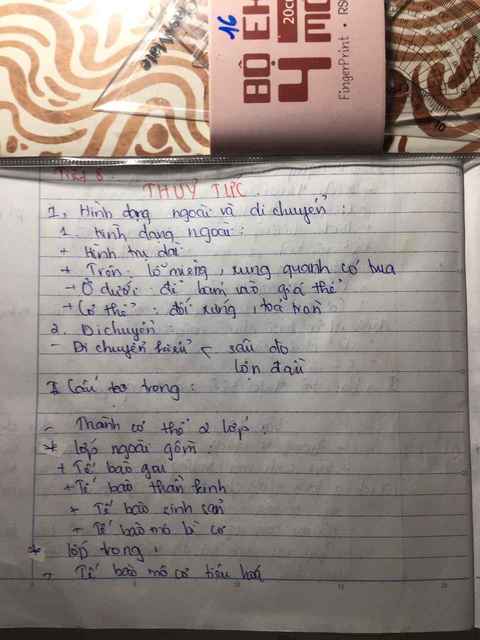 16
BỘ Ê
20c
4 MÓ
FingerPrint • RS
Mate
Tiết 8:
THUỶ TỨC
1, Hình dạng ngoài và di chuyển:
1. hình dạng ngoài:
+ Hình trụ dài
+ Trên: lỗ miệng, xung quanh có tua
- Ở dưới: đế bám vào giá thể
+ Cơ thể: đối xứng, toả tròn
2. Di chuyển:
- Di chuyển kiểu < sâu đo
lộn đầu
Cấu tạo trong:
- Thành cơ thể 2 lớp:
* lớp ngoài gồm:
+ Tế bào gai
+ Tế bào thần kinh
+ Tế bào sinh sản
+ Tế bào mô bì cơ
* lớp trong:
- Tế bào mô cơ tiêu hoá